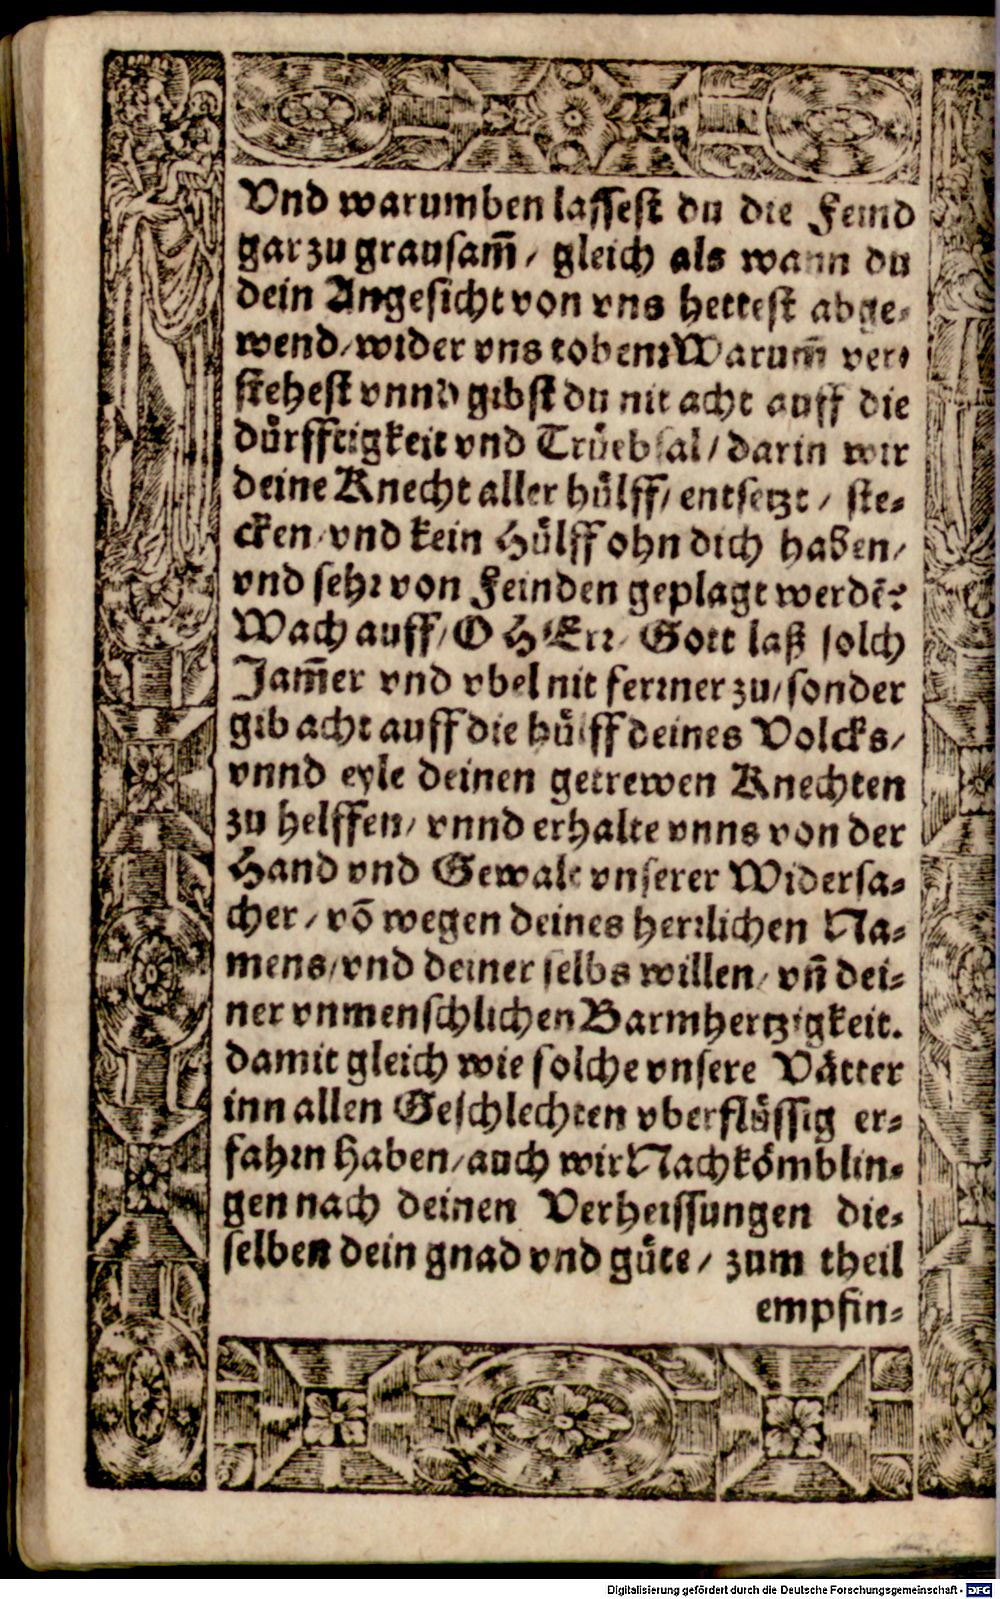 Vnd warumben lassest du die Feind
gar zu grausam̃ / gleich als wann du
dein Angesicht von vns hettest abge-
wend / wider vns toben? Warum̃ ver-
stehest vnnd gibst du nit acht auff die
dürfftigkeit vnd Trüebsal / darin wir
deine Knecht aller hülff / entsetzt / ste-
cken / vnd kein Hülff ohn dich haben /
vnd sehr von Feinden geplagt werdē?
Wach auff / O HErr / Gott laß solch
Jam̃er vnd vbel nit ferrner zu / sonder
gib acht auff die hülff deines Volcks /
vnnd eyle deinen getrewen Knechten
zu helffen / vnnd erhalte vnns von der
Hand vnd Gewalt vnserer Widersa-
cher / võ wegen deines herrlichen Na-
mens / vnd deiner selbs willen / vñ dei-
ner vnmenschlichen Barmhertzigkeit.
damit gleich wie solche vnsere Vätter
inn allen Geschlechten vberflüssig er-
fahrn haben / auch wir Nachkömblin-
gen nach deinen Verheissungen die-
selben dein gnad vnd güte / zum theil
empfin-
Digitalisierung gefördert durch die Deutsche Forschungsgemeinschaft - DFG